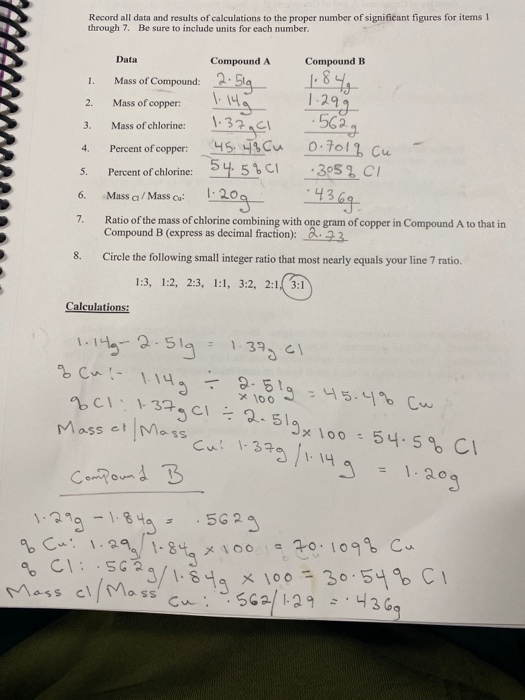 Record all data and results of calculations to the proper number of significant figures for items 1
through 7. Be sure to include units for each number.
Data Compound A Compound B
1. Mass of Compound: 2.51g 1.84g
2. Mass of copper: 1.14g 1.29g
3. Mass of chlorine: 1.37g Cl .562g
4. Percent of copper: 45.4% Cu 0.701% Cu
5. Percent of chlorine: 54.5% Cl .305% Cl
6. Mass Cl / Mass Cu: 1.20g .436g
7. Ratio of the mass of chlorine combining with one gram of copper in Compound A to that in
Compound B (express as decimal fraction): 2.73
8. Circle the following small integer ratio that most nearly equals your line 7 ratio.
1:3, 1:2, 2:3, 1:1, 3:2, 2:1, 3:1
Calculations:
1.14g - 2.51g = 1.37g Cl
% Cu:- 1.14g ÷ 2.51g × 100 = 45.4% Cu
% Cl: 1.37g Cl ÷ 2.51g × 100 = 54.5% Cl
Mass cl / Mass Cu: 1.37g / 1.14g = 1.20g
Compound B
1.29g - 1.84g = .562g
% Cu: 1.29g / 1.84g × 100 = 70.109% Cu
% Cl: .562g / 1.84g × 100 = 30.54% Cl
Mass cl / Mass Cu: .562 / 1.29 = .436g